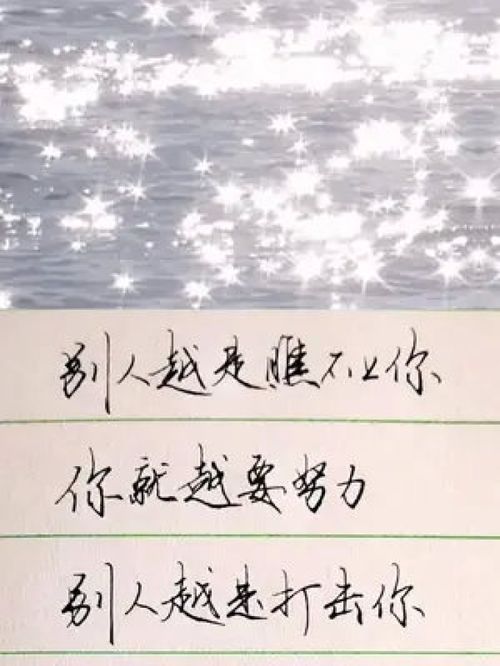 别人越是瞧不上你
你就越要努力
别人越是打击你